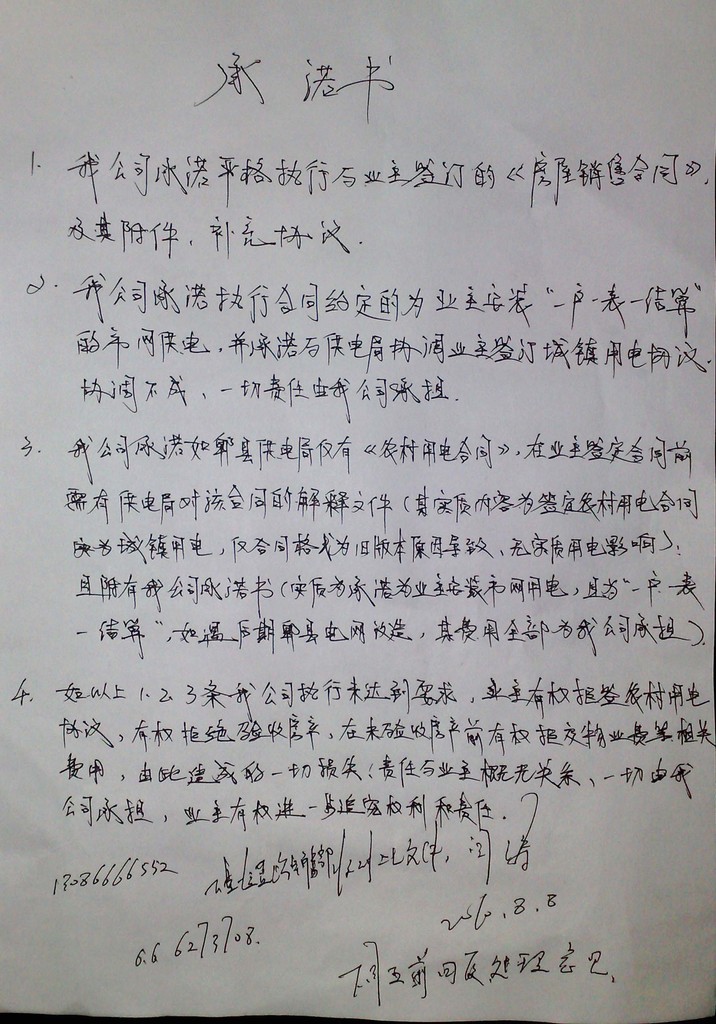 承诺书
1. 我公司承诺严格执行与业主签订的《房屋销售合同》,
及其附件、补充协议.
2. 我公司承诺执行合同约定的为业主安装"一户一表一结算"
的市网供电,并承诺与供电局协调业主签订城镇用电协议.
协调不成、一切责任由我公司承担.
3. 我公司承诺如郫县供电局仅有《农村用电合同》,在业主签定合同前
需有供电局对该合同的解释文件(其实质内容为签定农村用电合同
实为城镇用电,仅合同格式为旧版本原因导致、无实质用电影响);
且附有我公司承诺书(实质为承诺为业主安装市网用电,且为"一户一表
一结算",如遇后期郫县电网改造,其费用全部为我公司承担).
4. 如以上1.2.3条我公司执行未达到要求,业主有权拒签农村用电
协议,有权拒绝验收房产,在未验收房产前有权拒交物业费等相关
费用,由此造成的一切损失、责任与业主概无关系、一切由我
公司承担,业主有权进一步追究权利和责任.
13086666552
文件,闫涛
66 6273708.
2010.8.8
下周五前回复处理意见.